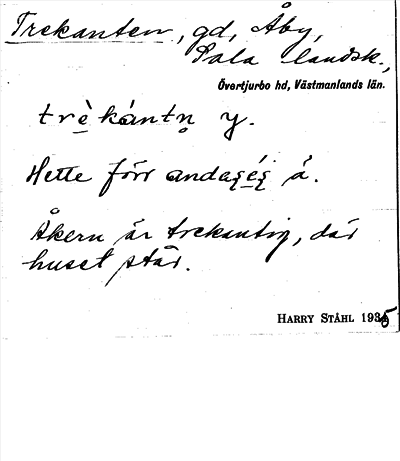 Trekanten, gd, Åby,
Sala landsk.,
Övertjurbo hd, Västmanlands län.
trè̱ ká̱ntn̥ y.
Hette förr å.
Åkern är trekantig, där
huset står.
HARRY STÅHL 1935